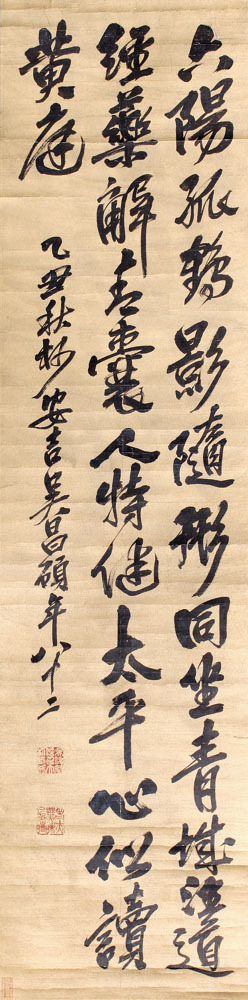 夕陽孤鶴影隨形同坐青城注道
經藥解青囊人特健太平心似讀
黃庭
乙丑秋杪安吉吳昌碩年八十二